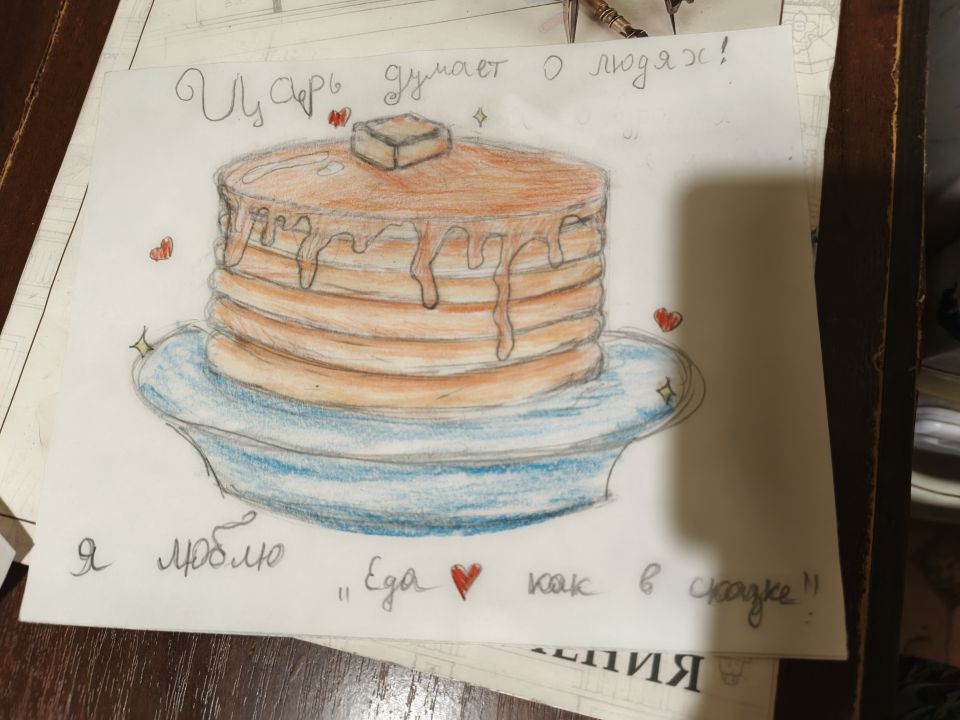 Царь думает о людях!
Я люблю
„Еда как в сказке"